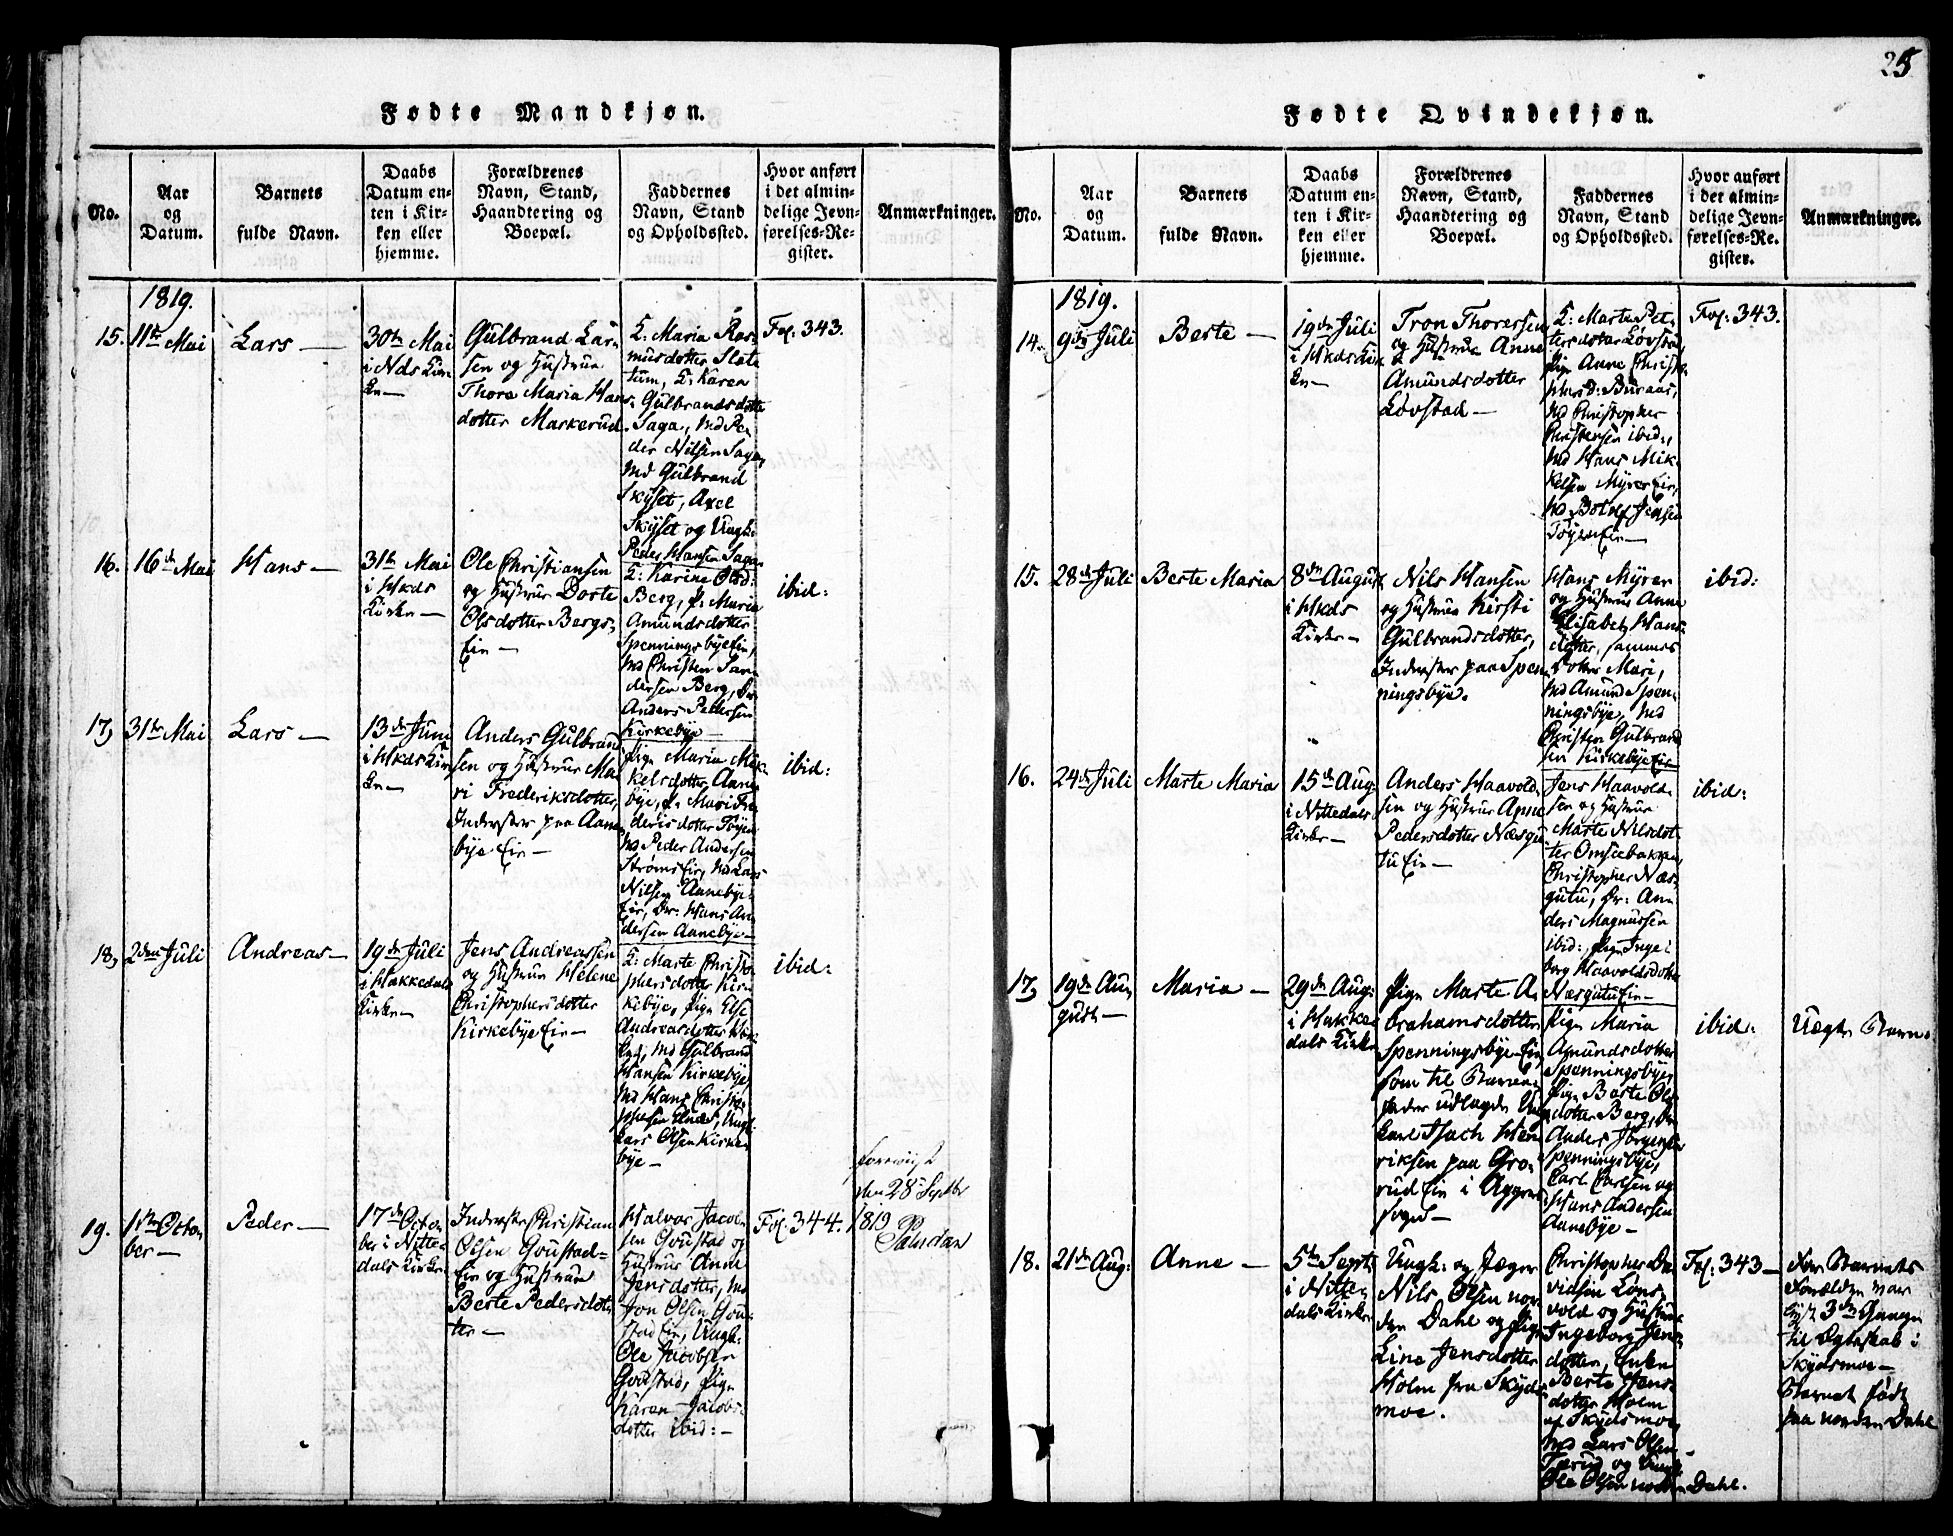 25
Fødte Mandkjøn.
No.
Aar
og
Datum.
Barnets
fulde Navn.
Daabs
Datum en-
ten i Kir-
ken eller
hjemme.
Forældrenes
Navn, Stand,
Haandtering og
Boepæl.
Faddernes
Navn, Stand
og Opholdssted.
Hvor anført
i det almin-
delige Jevn-
førelses-Re-
gister.
Anmærkninger.
1819.
15.
11te Mai
Lars
30te Mai
i Nds Kir-
ke
Gulbrand Lar-
sen og Hustrue
Thore Maria Hans-
dotter Markerud
K: Maria Ras-
musdotter Slate
tum, K: Karen
Gulbrandsdotter
Saga, Md Pe-
der Nilsen Saga,
Md Gulbrand
Skyset, Axel
Skyset og Ungk:
Peder Hansen Saga
Fol: 343.
16.
16de Mai
Hans
31te Mai
i Hkds
Kirke
Ole Christiansen
og Hustrue Dorte
Olsdotter Bergs-
Eie
K: Karine Olsd:
Berg, p: Maria
Amundsdotter
Spenningsbyeeie,
Md Christen San-
dersen Berg, Dr:
Anders Pettersen
Kirkebye
ibid:
17.
31te Mai
Lars
13de Juni
i Hkds Kir-
ke
Anders Gulbrand-
sen og Hustrue Ma-
ri Frederiksdotter,
Inderster paa Aane-
bye Eie
Pige Maria Mik-
kelsdotter Aane-
bye, p: Mari Fre-
deriksdotter Töyen
Md Peder Andersen
Ströms Eie, Md Lars
Nilsen Aanebye-
Eie, Dr: Hans An-
dersen Aanebye
ibid:
18.
2den Juli
Andreas
19de Juli
i Hakkedals
Kirke
Jens Andreassen
og Hustrue Helene
Christophersdotter
Kirkebye Eie
K: Marte Christo-
phersdotter Kir-
kebye, Pige Else
Andreasdotter
Md Gulbrand
Hansen Kirkebye,
Md Hans Christo-
phersen Ungk:
Lars Olsen Kirke-
bye
ibid:
19.
1ste Octo-
ber
Peder
17de Octo-
ber i Nitte-
dals Kirke
Inderster Christian
Olsen Goustad-
Eie og Hustrue
Berte Pedersdot-
ter
Halvor Jacob-
sen Goustad og
Hustrue Anne
Jensdotter, Md
Jon Olsen Gou-
stad Eie, Ungk:
Ole Jacobsen
Goustad, Pige
Karen Jacobs-
dotter ibid:
Fol: 344.
foreviist
den 28 Septbr
1819
Paludan
Fødte Qvindekjøn.
No.
Aar
og
Datum.
Barnets
fulde Navn.
Daabs
Datum en-
ten i Kir-
ken eller
hjemme.
Forældrenes
Navn, Stand,
Haandtering og
Boepæl.
Faddernes
Navn, Stand
og Opholdssted.
Hvor anført
i det almin-
delige Jevn-
førelses-Re-
gister.
Anmærkninger.
1819.
14.
9de Juli
Berte
19de Juli
i Hkds Kir-
ke
Tron Thoresen
og Hustrue Anne
Amundsdotter
Lövstad
K: Marte Pet-
tersdotter Lövstad
Pige Anne Christo-
phersd: Buraas,
Md Christopher
Christensen ibid:,
Md Hans Mik-
kelsen Myrer Eie,
Md Botolf Jensen
Töyen Eie
Fol: 343.
15.
28de Juli
Berte Maria
8de August
i Hkds
Kirke
Nils Hansen
og Hustrue Kirsti
Gulbrandsdotter,
Inderster paa Spen-
ningsbye.
Hans Myrer
og Hustrue Anne
Elisabet Hans-
dotter, sammes
Dotter Mari,
Md Amund Spen-
ningsbye, Md
Christen Gulbrand-
sen Kirkebye Eie
ibid:
16.
24de Juli
Marte Maria
15de Aug:
i Nittedals
Kirke
Anders Haavold-
sen og Hustrue Anne
Pedersdotter Næsgu-
tu Eie
Jens Haavold-
sen og Hustrue
Marte Nilsdot-
ter Omsebakken,
Christopher Næs-
gutu, Dr: An-
ders Magnussen
ibid:, Pige Inge-
borg Haavoldsdotter
Næsgutu Eie
ibid:
17.
19de Au-
gust
Maria
29de Aug:
i Hakke-
dals Kirke
Pige Marte A-
brahamsdotter
Spenningsbye-Eie
som til Barne-
fader udlagde Ung-
karl Isach Hen-
riksen paa Gro-
rud Eie i Aggers
Sogn
Pige Maria
Amundsdotter
Spenningsbye,
Pige Berte Ols-
dotter Berg, Dr
Anders Jörgensen
Spenningsbye,
Carl Carlsen og
Hans Andersen
Aanebye
ibid:
Uægte Barn.
18.
21de Aug:
Anne
5te Septr
i Nitte-
dals Kirke
Ungk: og Jæger
Nils Olsen nor-
den Dahl og Pige
Line Jensdotter
Holm fra Skyds-
moe.
Christopher Da-
vidsen Löns-
vold og Hustrue
Ingeborg Jens-
dotter, Enke
Berte Jens-
dotter Holm
af Skydsmoe
Md Lars Olsen
Færud og Ungk:
Ole Olsen norden Dahl.
Fol: 343
For Barnets
Forældre var
lyst 3de Gange
til Ægteskab i
Skydsmoe
Barnet født
paa norden Dahl